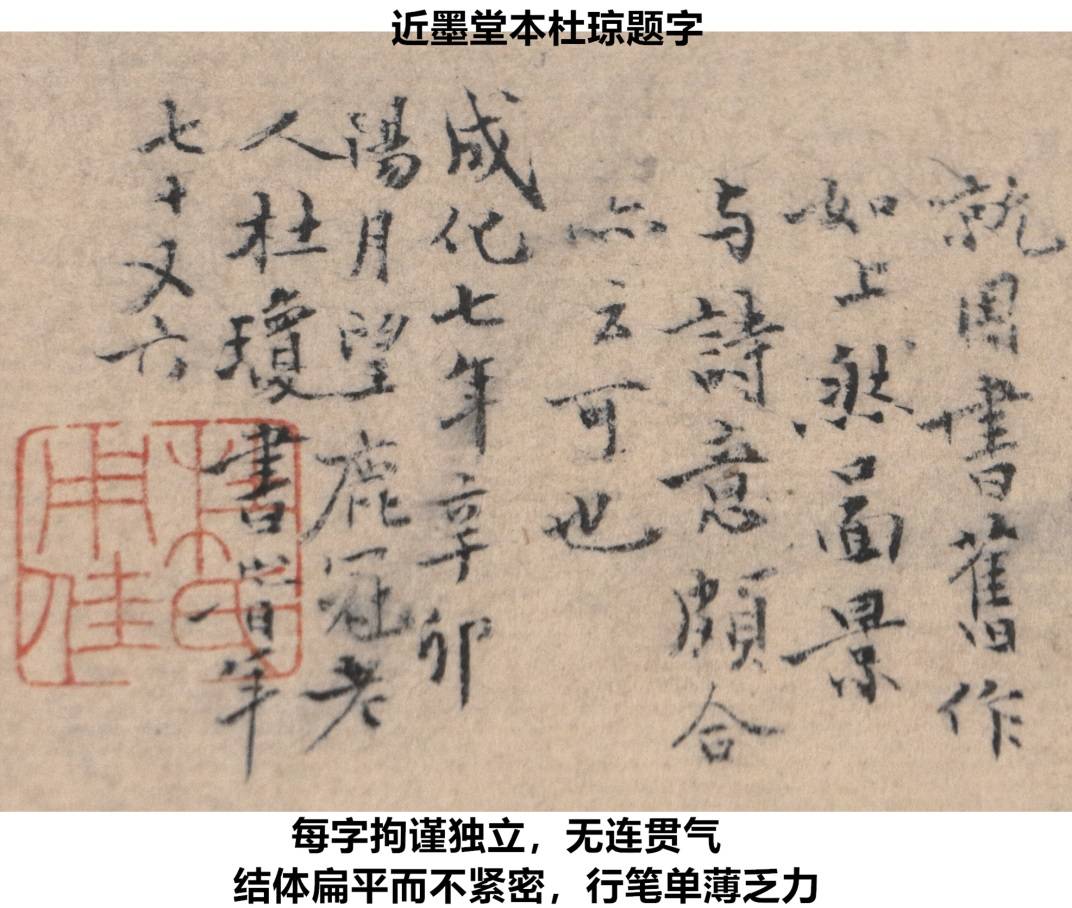 近墨堂本杜琼题字
就因書舊作
如上然啚景
与詩意頗合
亦云可也
成化七年辛卯
陽月望鹿冠老
人杜瓊書峕年
七十又六
每字拘谨独立，无连贯气
结体扁平而不紧密，行笔单薄乏力